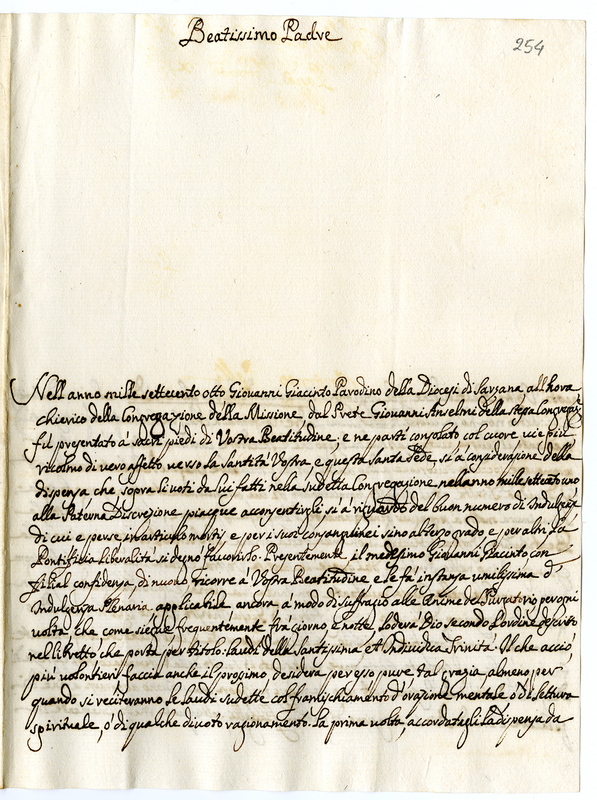 Beatissimo Padre
254
Nell anno mille settecento otto Giovanni Giacinto Parodino della Diocesi di Sarzana all hora
chierico della Congregazione della Missione dal Prete Giovanni Anselmi della stessa Congregaz
fù presentato a' sacri piedi di Vostra Beatitudine, e ne partì consolato col cuore vie più
ricolmo di vero affetto verso la Santità Vostra e questa Santa Sede, sì a considerazione della
dispensa che sopra li voti da lui fatti nella sudetta Congregazione nell anno mille settecento uno
alla Paterna Discrezione piacque acconsentirgli sì a riguardo del buon numero di Indulgze
di cui e per se in articulo mortis, e per i suoi consanguinei sino al terzo grado e per altri la
Pontificia liberalità si degnò favorirlo. Presentemente il medesimo Giovanni Giacinto con
filial confidenza, di nuovo ricorre a' Vostra Beatitudine e le fà instanza umilissima d'
Indulgenza Plenaria applicabile ancora à modo di suffragio alle Anime del Purgatorio per ogni
volta che come siegue frequentemente frà giorno e notte, loderà Dio secondo l'ordine descritto
nel libretto che porta per titolo: laudi della Santissima et Individua Trinità. Il che acciò
più volontieri faccia anche il prossimo desidera per esso pure tal grazia almeno per
quando si reciteranno le laudi sudette col framischiamento d'orazione mentale ò di lettura
spirituale, ò di qualche divoto ragionamento. La prima volta, accordatagli la dispensa da